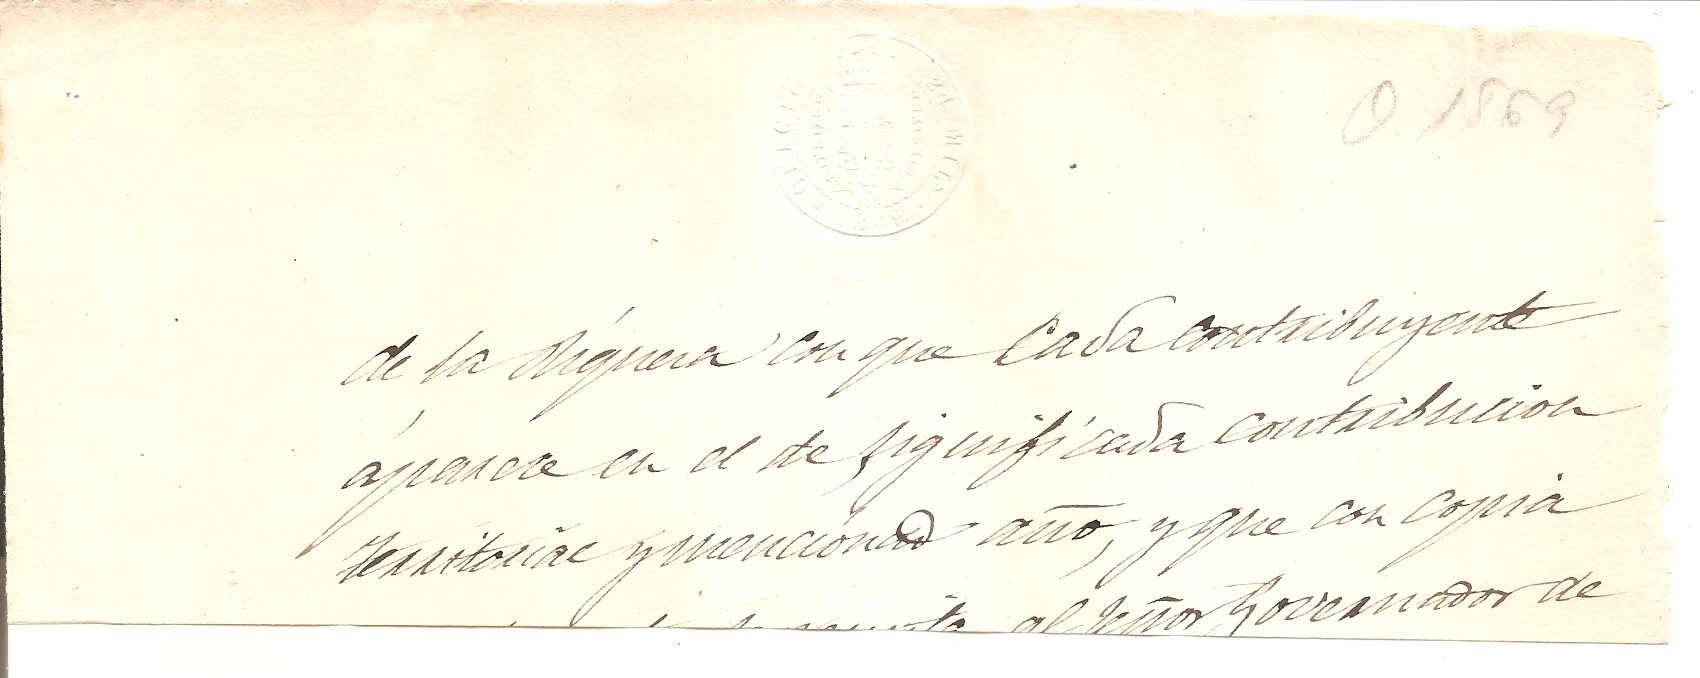 OFICIO 24 MILS
O. 1869
de la riqueza con que Cada contribuyente
áparece en el de significada contribucion
territorial y mencionado año, y que con copia
remita al Señor Governador de